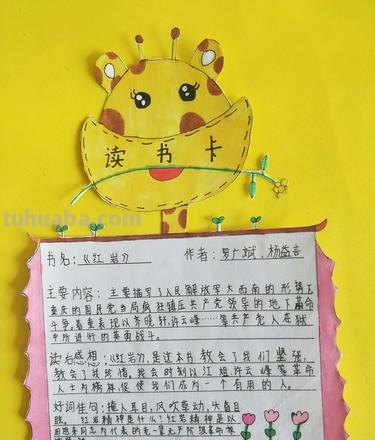 读书卡
tuhuaba.com
书名：《红岩》 作者：罗广斌、杨益言
主要内容：主要描写了人民解放军大西南的形势下
重庆的国民党当局疯狂镇压共产党领导的地下革命
斗争。着重表现以齐晓轩、许云峰……等共产党人在狱
中所进行的英勇战斗。
读后感想：《红岩》，是这本书教会了我们坚强，
教会了我珍惜。我会时刻以江姐、许云峰等革命
人士为榜样，促使我们成为一个有用的人。
好词佳句：掩人耳目、风吹草动、
红岩精神是什么？红岩精神是以